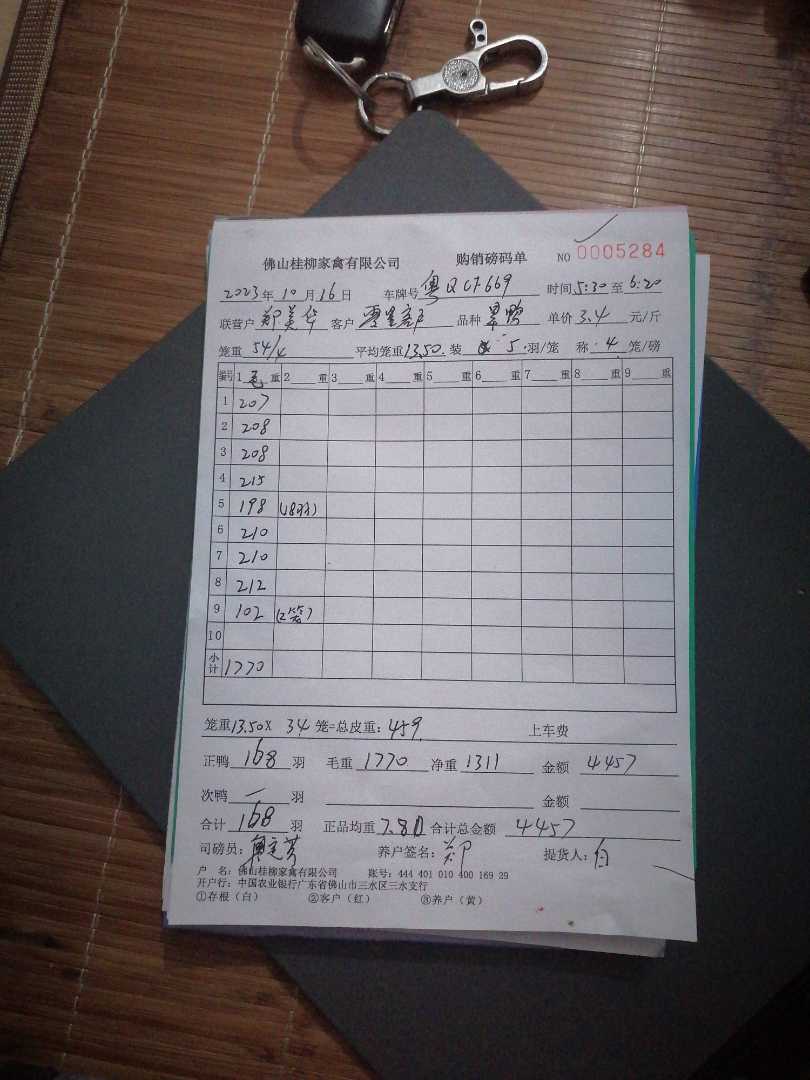 佛山桂柳家禽有限公司 购销磅码单 NO 0005284
2023年10月16日 车牌号 粤QCF669 时间5:30至6:20
联营户 郑美华 客户 零星客户 品种 单价 3.4 元/斤
笼重 54/4 平均笼重13.50.装 5.羽/笼 称.4.笼/磅
编号 1毛重 2重 3重 4重 5重 6重 7重 8重 9重
1 207
2 208
3 208
4 215
5 198 (18羽)
6 210
7 210
8 212
9 102 (2笼)
10
小计 1770
笼重13.50X 34 笼=总皮重:459 上车费
正鸭 168 羽 毛重 1770 净重 1311 金额 4457
次鸭 一 羽 金额
合计 168 羽 正品均重 7.80 合计总金额 4457
司磅员: 养户签名:郑 提货人:
户 名:佛山桂柳家禽有限公司 账号:444 401 010 400 169 29
开户行:中国农业银行广东省佛山市三水区三水支行
①存根(白) ②客户(红) ③养户(黄)